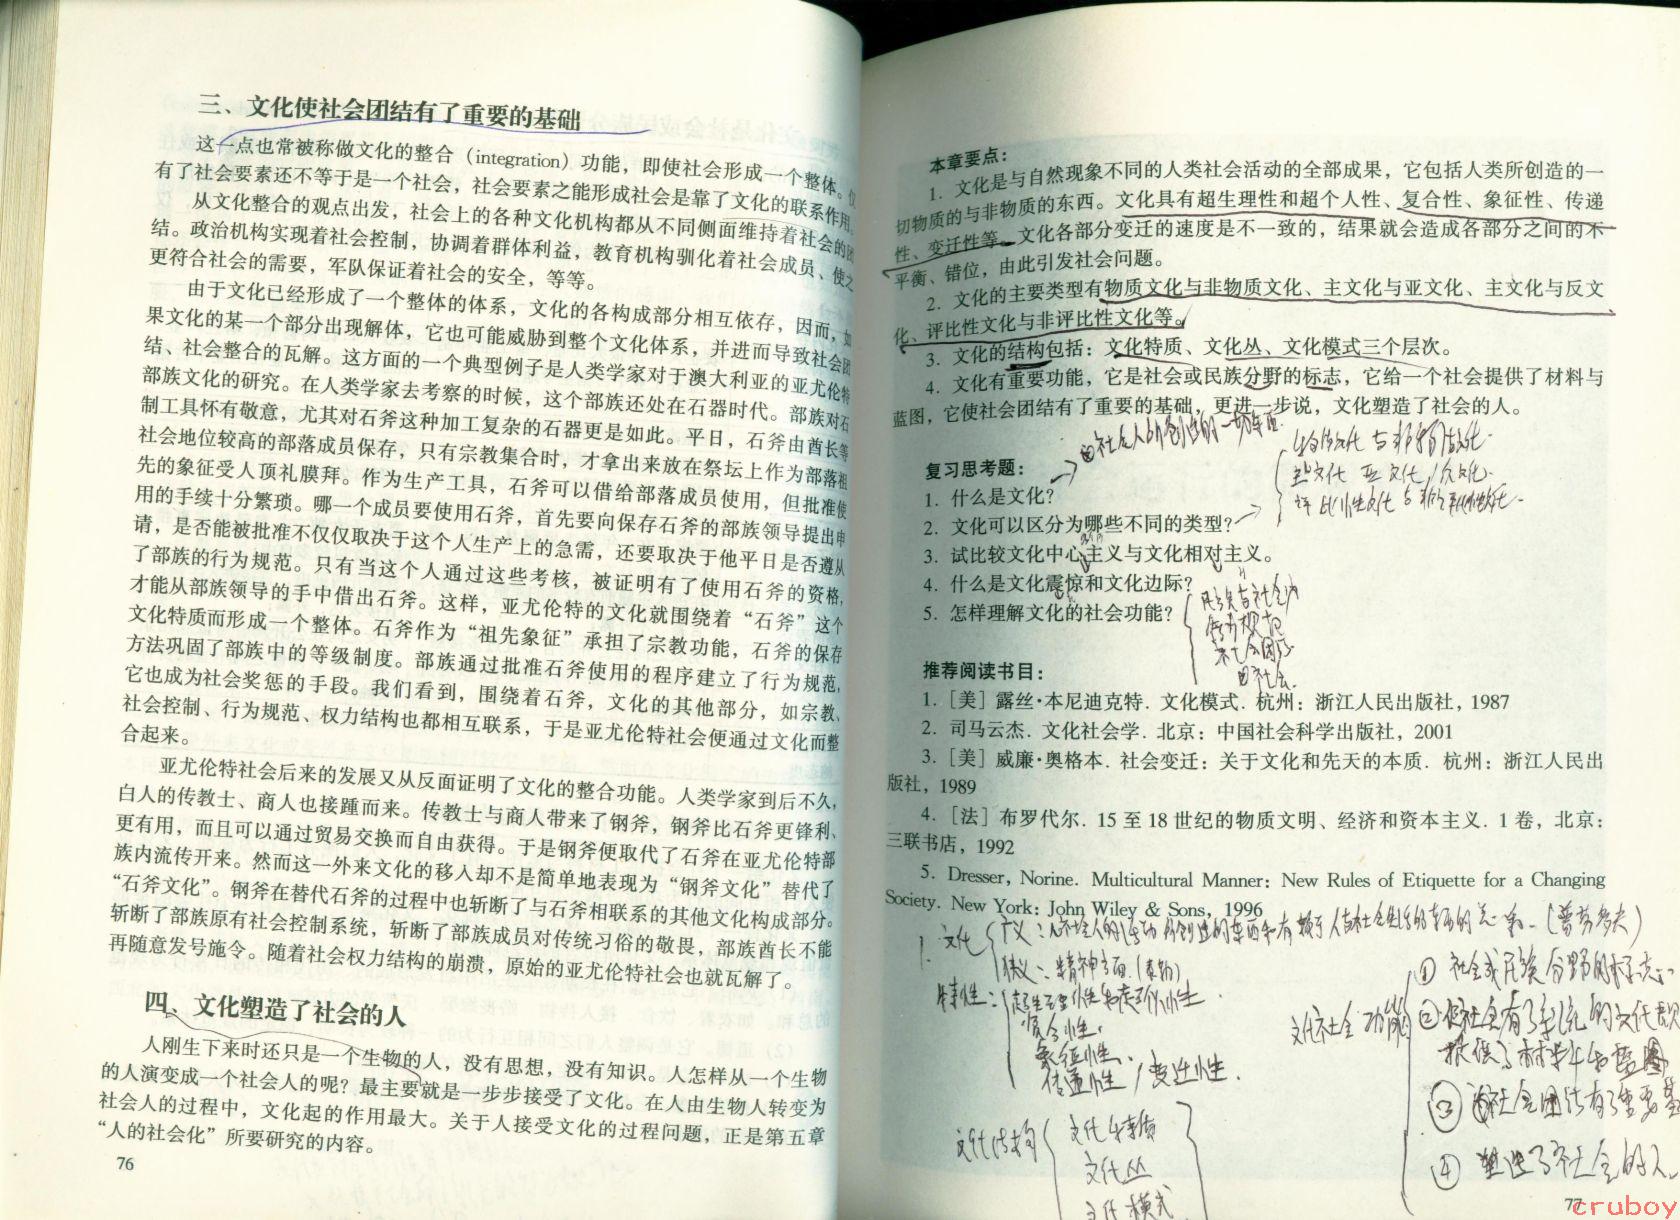 三、文化使社会团结有了重要的基础
这一点也常被称做文化的整合（integration）功能，即使社会形成一个整体。仅
有了社会要素还不等于是一个社会，社会要素之能形成社会是靠了文化的联系作用。
从文化整合的观点出发，社会上的各种文化机构都从不同侧面维持着社会的团
结。政治机构实现着社会控制，协调着群体利益，教育机构驯化着社会成员、使之
更符合社会的需要，军队保证着社会的安全，等等。
由于文化已经形成了一个整体的体系，文化的各构成部分相互依存，因而，如
果文化的某一个部分出现解体，它也可能威胁到整个文化体系，并进而导致社会团
结、社会整合的瓦解。这方面的一个典型例子是人类学家对于澳大利亚的亚尤伦特
部族文化的研究。在人类学家去考察的时候，这个部族还处在石器时代。部族对石
制工具怀有敬意，尤其对石斧这种加工复杂的石器更是如此。平日，石斧由酋长等
社会地位较高的部落成员保存，只有宗教集合时，才拿出来放在祭坛上作为部落祖
先的象征受人顶礼膜拜。作为生产工具，石斧可以借给部落成员使用，但批准使
用的手续十分繁琐。哪一个成员要使用石斧，首先要向保存石斧的部族领导提出申
请，是否能被批准不仅仅取决于这个人生产上的急需，还要取决于他平日是否遵从
了部族的行为规范。只有当这个人通过这些考核，被证明有了使用石斧的资格，
才能从部族领导的手中借出石斧。这样，亚尤伦特的文化就围绕着“石斧”这个
文化特质而形成一个整体。石斧作为“祖先象征”承担了宗教功能，石斧的保存
方法巩固了部族中的等级制度。部族通过批准石斧使用的程序建立了行为规范，
它也成为社会奖惩的手段。我们看到，围绕着石斧，文化的其他部分，如宗教、
社会控制、行为规范、权力结构也都相互联系，于是亚尤伦特社会便通过文化而整
合起来。
亚尤伦特社会后来的发展又从反面证明了文化的整合功能。人类学家到后不久，
白人的传教士、商人也接踵而来。传教士与商人带来了钢斧，钢斧比石斧更锋利、
更有用，而且可以通过贸易交换而自由获得。于是钢斧便取代了石斧在亚尤伦特部
族内流传开来。然而这一外来文化的移入却不是简单地表现为“钢斧文化”替代了
“石斧文化”。钢斧在替代石斧的过程中也斩断了与石斧相联系的其他文化构成部分。
斩断了部族原有社会控制系统，斩断了部族成员对传统习俗的敬畏，部族酋长不能
再随意发号施令。随着社会权力结构的崩溃，原始的亚尤伦特社会也就瓦解了。
四、文化塑造了社会的人
人刚生下来时还只是一个生物的人，没有思想，没有知识。人怎样从一个生物
的人演变成一个社会人的呢？最主要就是一步步接受了文化。在人由生物人转变为
社会人的过程中，文化起的作用最大。关于人接受文化的过程问题，正是第五章
“人的社会化”所要研究的内容。
76
本章要点：
1. 文化是与自然现象不同的人类社会活动的全部成果，它包括人类所创造的一
切物质的与非物质的东西。文化具有超生理性和超个人性、复合性、象征性、传递
性、变迁性等。文化各部分变迁的速度是不一致的，结果就会造成各部分之间的不
平衡、错位，由此引发社会问题。
2. 文化的主要类型有物质文化与非物质文化、主文化与亚文化、主文化与反文
化、评比性文化与非评比性文化等。
3. 文化的结构包括：文化特质、文化丛、文化模式三个层次。
4. 文化有重要功能，它是社会或民族分野的标志，它给一个社会提供了材料与
蓝图，它使社会团结有了重要的基础，更进一步说，文化塑造了社会的人。
复习思考题：
1. 什么是文化？
2. 文化可以区分为哪些不同的类型？
物质文化与非物质文化
主文化 亚文化/反文化
评比性文化与非评比性文化
3. 试比较文化中心主义与文化相对主义。
4. 什么是文化震惊和文化边际？
5. 怎样理解文化的社会功能？
推荐阅读书目：
1.［美］露丝·本尼迪克特. 文化模式. 杭州：浙江人民出版社，1987
2. 司马云杰. 文化社会学. 北京：中国社会科学出版社，2001
3.［美］威廉·奥格本. 社会变迁：关于文化和先天的本质. 杭州：浙江人民出
版社，1989
4.［法］布罗代尔. 15 至 18 世纪的物质文明、经济和资本主义. 1 卷，北京：
三联书店，1992
5. Dresser, Norine. Multicultural Manner: New Rules of Etiquette for a Changing
Society. New York: John Wiley & Sons, 1996
文化
广义：
狭义：精神方面.（泰勒）
特性：超生理性和超个人性.
复合性.
象征性.
传递性/变迁性.
文化结构
文化特质
文化丛
文化模式
文化社会功能
① 社会或民族分野的标志
② 使社会有了系统的
提供了材料和蓝图
③ 使社会团结有了重要基
④ 塑造了社会的人.
77
cruboy